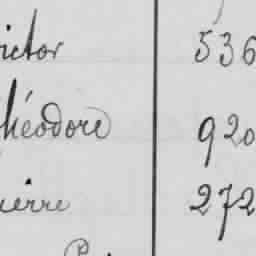 ictor 536
héodore 920
ierre 272